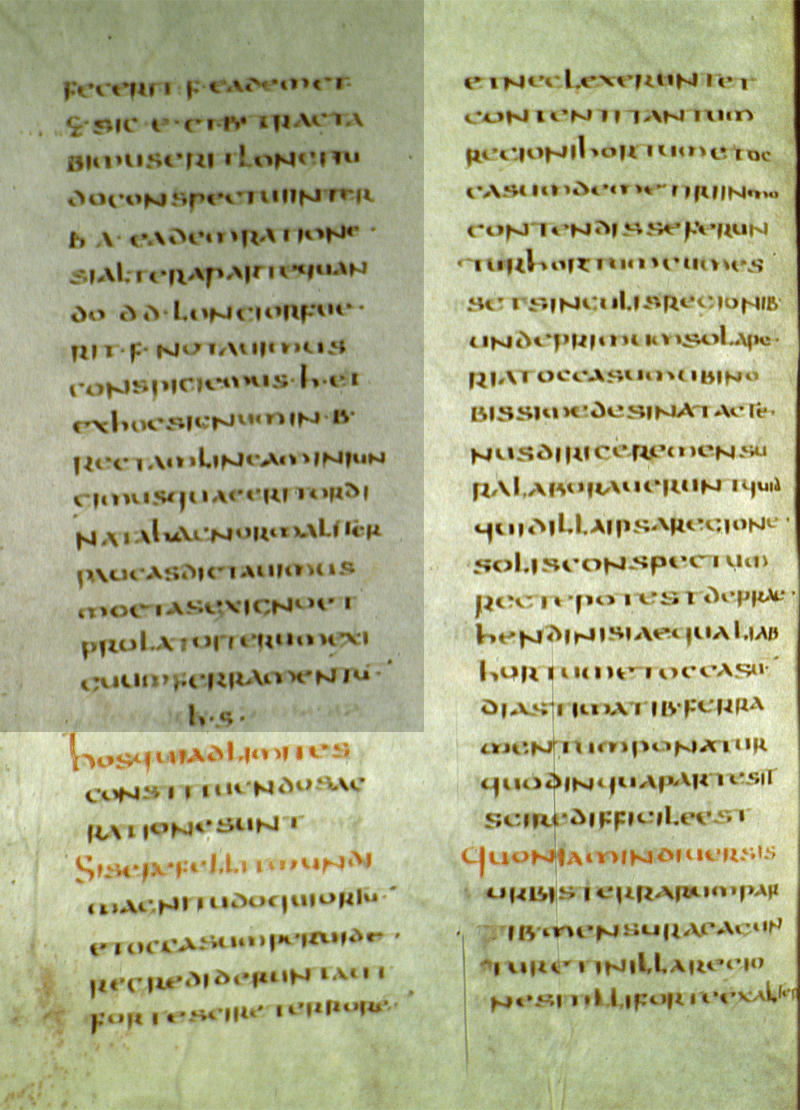 FECERIT F EADEMET
SIC E ET B TRACTA
BIMUSERITLONGITU
DOCONSPECTUIINTER
B A EADEMRATIONE
SIALTERAPARTEQUAN
DO D D LONGIORFUE
RIT F NOTAUIMUS
CONSPICIEMUS H ET
EXHOCSIGNUMIN B
RECTAMLINEAMINIUN
GIMUSQUAECERITORDI
NATAHACNORMALITER
PAUCASDICTAUIMUS
METASEXIGNOET
PROLATOFERUMEXI
GUUMFERRAMENTU
H S
HOSQUIADLIMITES
CONSTITUENDOSAC
RATIONESUNT
SISEFEFELLITMUNDI
MAGNITUDOQUIORTU
ETOCCASUMPERUIDE
RECREDIDERUNTAUT
FORTESCIRETERRORE
ETNECLEXERUNTET
CONTENTITANTUM
REGIONIHORTUMETOC
CASUMDEMETIRIINMO
CONTENDISSEFERUN
TURHORTUMEUMES
SETSINGULISREGIONIB
UNDEPRIMUMSOLAPE
RIATOCCASUMUBINO
BISSIMEDESINATACTE
NUSDIRIGEREMENSU
RALABORAUERUNTQUID
QUIDILLAIPSAREGIONE
SOLISCONSPECTUM
RECTEPOTESTDEPRAE
HENDINISIAEQUALIAB
HORTUMETOCCASU
DIASTIMATIBFERRA
MENTUMPONATUR
QUODINQUAPARTESIT
SCIREDIFFICILEEST
QUONIAMINDIUERSIS
URBISTERRARUMPAR
TIBMENSURAEAGUN
TURETINILLAREGIO
NESITILLIFORTEEXALTER